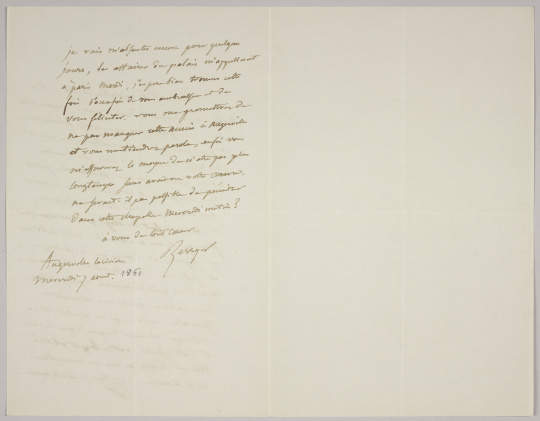 je vais m'absenter encore pour quelques
jours, les affaires du palais m'appellant
à paris Mardi, j'espère bien trouver cette
fois l'occasion de vous embrasser et de
vous féliciter. vous me promettrez de
ne pas manquer cette année à Augerville
et vous me tiendrez parole, enfin vous
m'assurerez le moyen de n'être pas plus
longtemps sans avoir vu votre œuvre.
ne serait-il pas possible de pénétrer
Dans cette chapelle Mercredi matin ?
à vous de tout cœur
Berryer
Augerville la rivière
Mercredi 7 aout. 1861